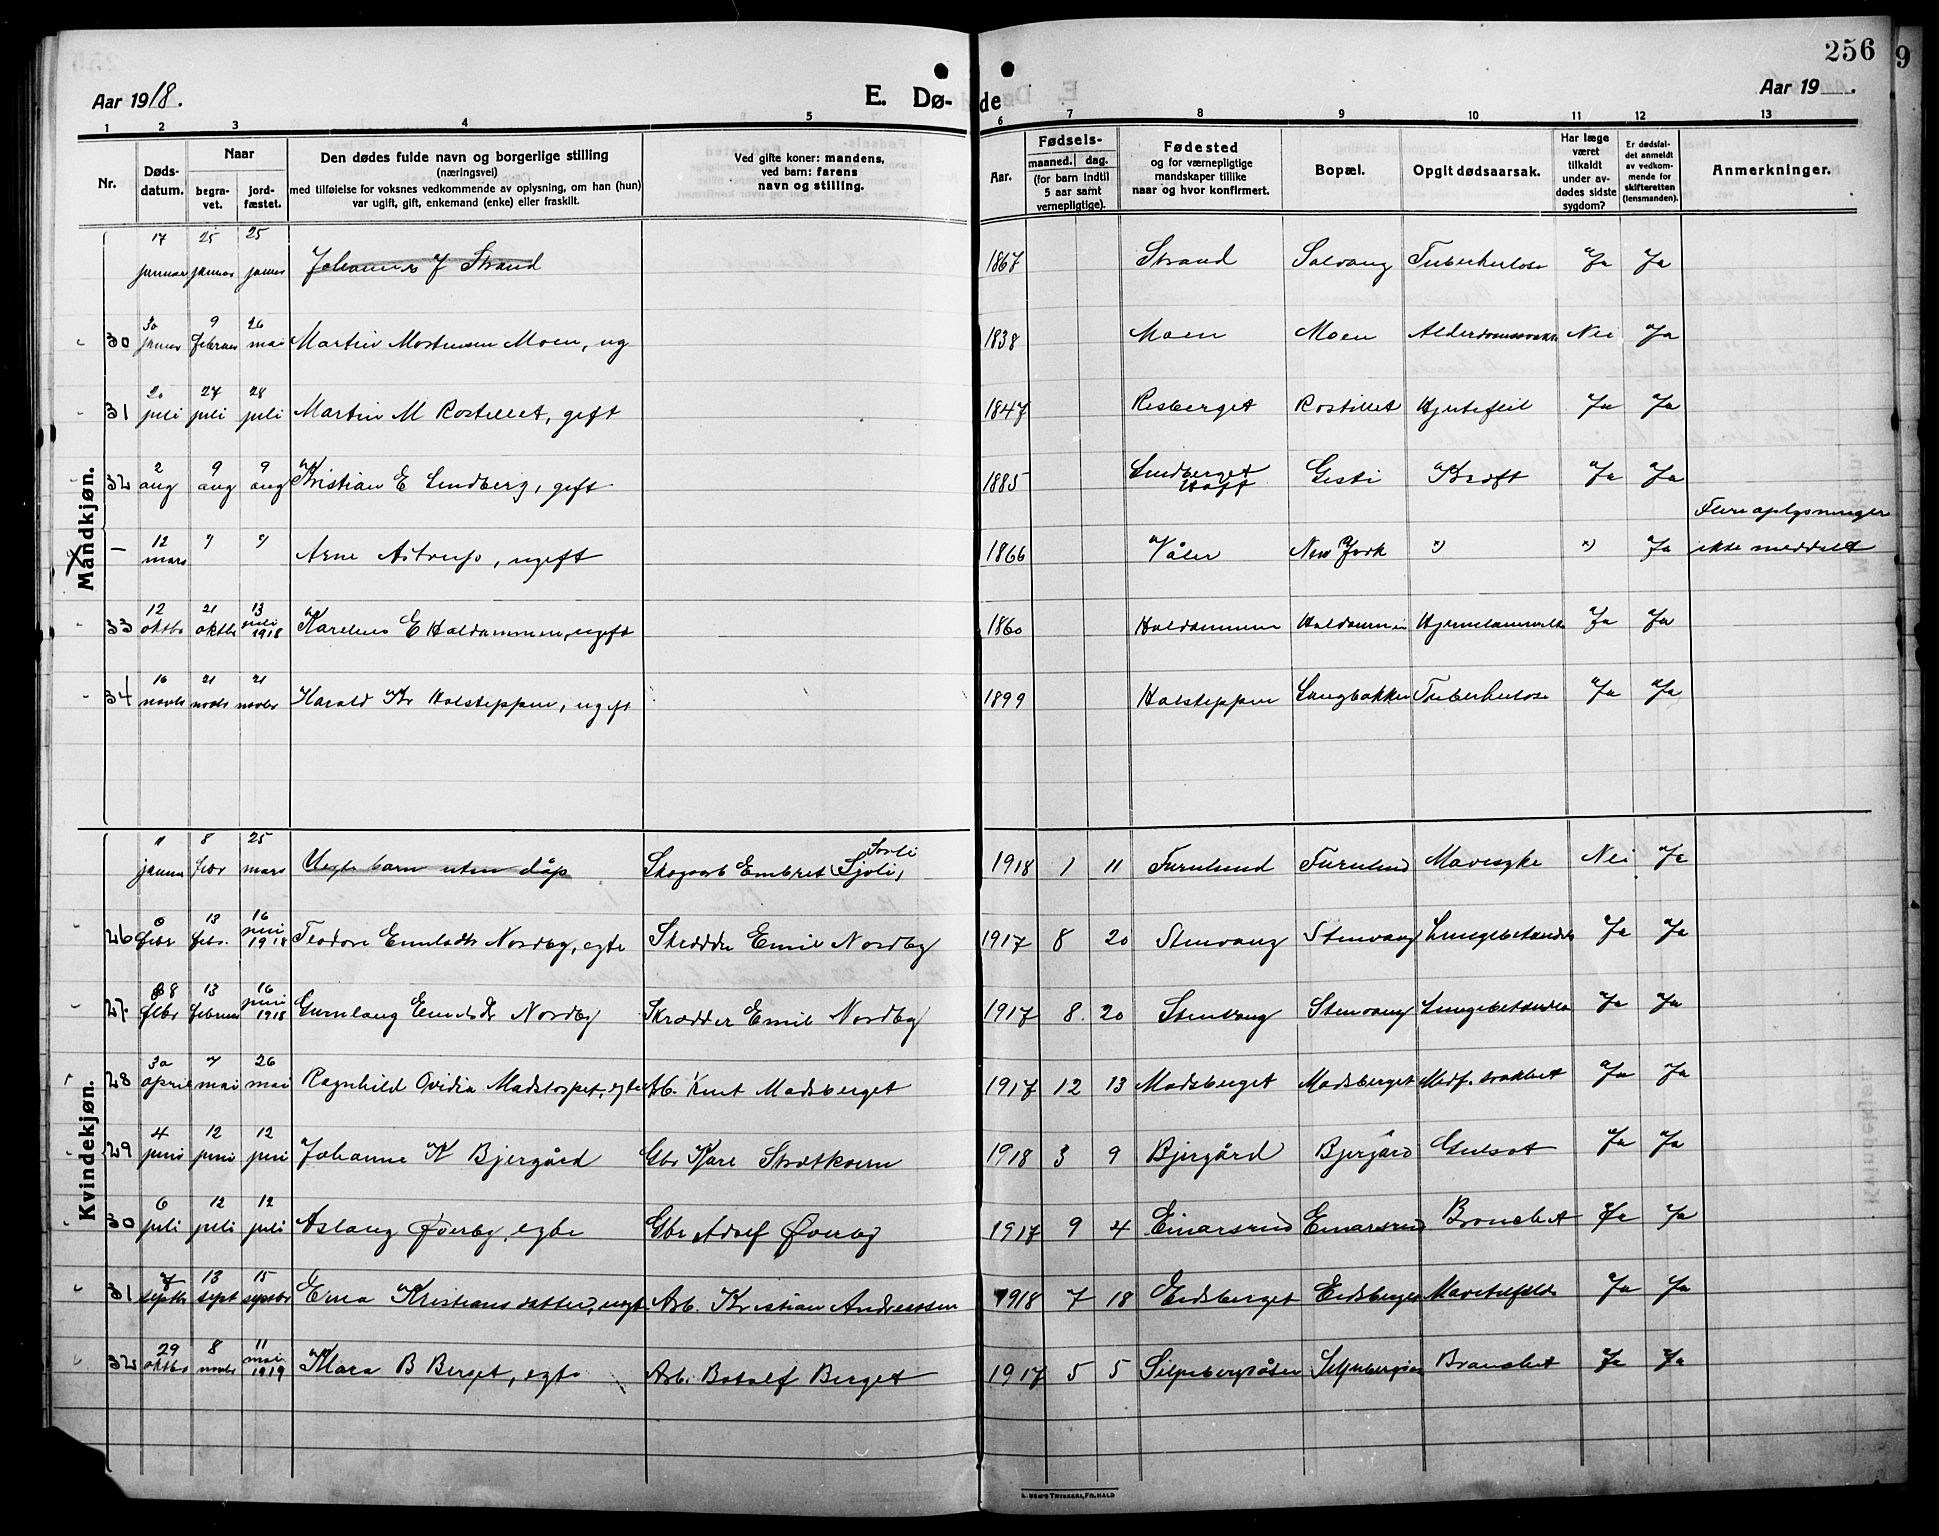 256
9
Aar 1918.
E. Dø-
de
Aar 19 .
1 2 3 4 5 6 7 8 9 10 11 12 13
Nr.
Døds-
datum.
Naar
begra-
vet.
jord-
fæstet.
Den dødes fulde navn og borgerlige stilling
(næringsvei)
med tilføielse for voksnes vedkommende av oplysning, om han (hun)
var ugift, gift, enkemand (enke) eller fraskilt.
Ved gifte koner: mandens,
ved barn: farens
navn og stilling.
Aar.
Fødsels-
maaned. dag.
(for barn indtil
5 aar samt
vernepligtige).
Fødested
og for værnepligtige
mandskaper tillike
naar og hvor konfirmert.
Bopæl.
Opgit dødsaarsak.
Har læge
været
tilkaldt
under av-
dødes sidste
sygdom?
Er dødsfal-
det anmeldt
av vedkom-
mende for
skifteretten
(lensmanden).
Anmerkninger.
Mandkjøn.
17 januar 25 januar 25 januar Johannes J Strand 1867 Strand Solvang Tuberkulose Ja Ja
30 30 januar 9 februar 26 mai Martin Mortensen Moen, ug 1838 Moen Moen Nei Ja
31 20 juli 27 juli 28 juli Martin M Rostillet, gift 1847 Risberget Rostillet Hjertefeil Ja Ja
32 2 aug 9 aug 9 aug Kristian E Lindberg, gift 1885 Lindberget Hoff Gesti Kræft Ja Ja
— 12 mars " " Arne Astrup, ugift 1866 Våler New York Ja Flere oplysninger
ikke meddelt
33 12 oktbr 21 oktbr 13 juli 1918 Karelius E Haldammen, ugift 1860 Haldammen Haldammen Ja Ja
34 16 novbr 21 novbr 21 novbr Harald Kr Halsteppen, ugift 1899 Halsteppen Langbakken Tuberkulose Ja Ja
Kvindekjøn.
11 januar 8 febr 25 mars Uegte barn uten dåp Skogsarb Embret Sjøli, 1918 1 11 Furulund Furulund Mavesyke Nei Ja
26 febr 13 febr. 16 juni 1918 Teodora Emilsdtr Nordby, egte Skrædder Emil Nordby 1917 8 20 Stenvang Stenvang Lungebetændelse Ja Ja
27 8 febr 13 februar 16 juni 1918 Gunlaug Emilsdtr Nordby Skrædder Emil Nordby 1917 8 20 Stenvang Stenvang Lungebetændelse Ja Ja
28 30 april 7 mai 26 mai Ragnhild Ovidia Madstorpet, egte Arb. Knut Madsberget 1917 12 13 Madsberget Madsberget Medf. svakhet Ja Ja
29 4 juni 12 juni 12 juni Johanne K Bjergård Gbr Kare 1918 3 9 Bjergård Bjergård Gulsot Ja Ja
30 6 juli 12 juli 12 juli Aslaug Øverby, egte Gbr Adolf Øverby 1917 9 4 Einarsrud Einarsrud Bronchit Ja Ja
31 7 septbr 13 sept 15 septbr Erna Kristiansdatter, uegt Arb. Kristian Andreassen 1918 7 18 Eidsberget Eidsberget Ja Ja
32 29 oktbr 8 novbr 11 mai 1919 Klara B Berget, egte Arb. Botolf Berget 1917 5 5 Bronchit Ja Ja